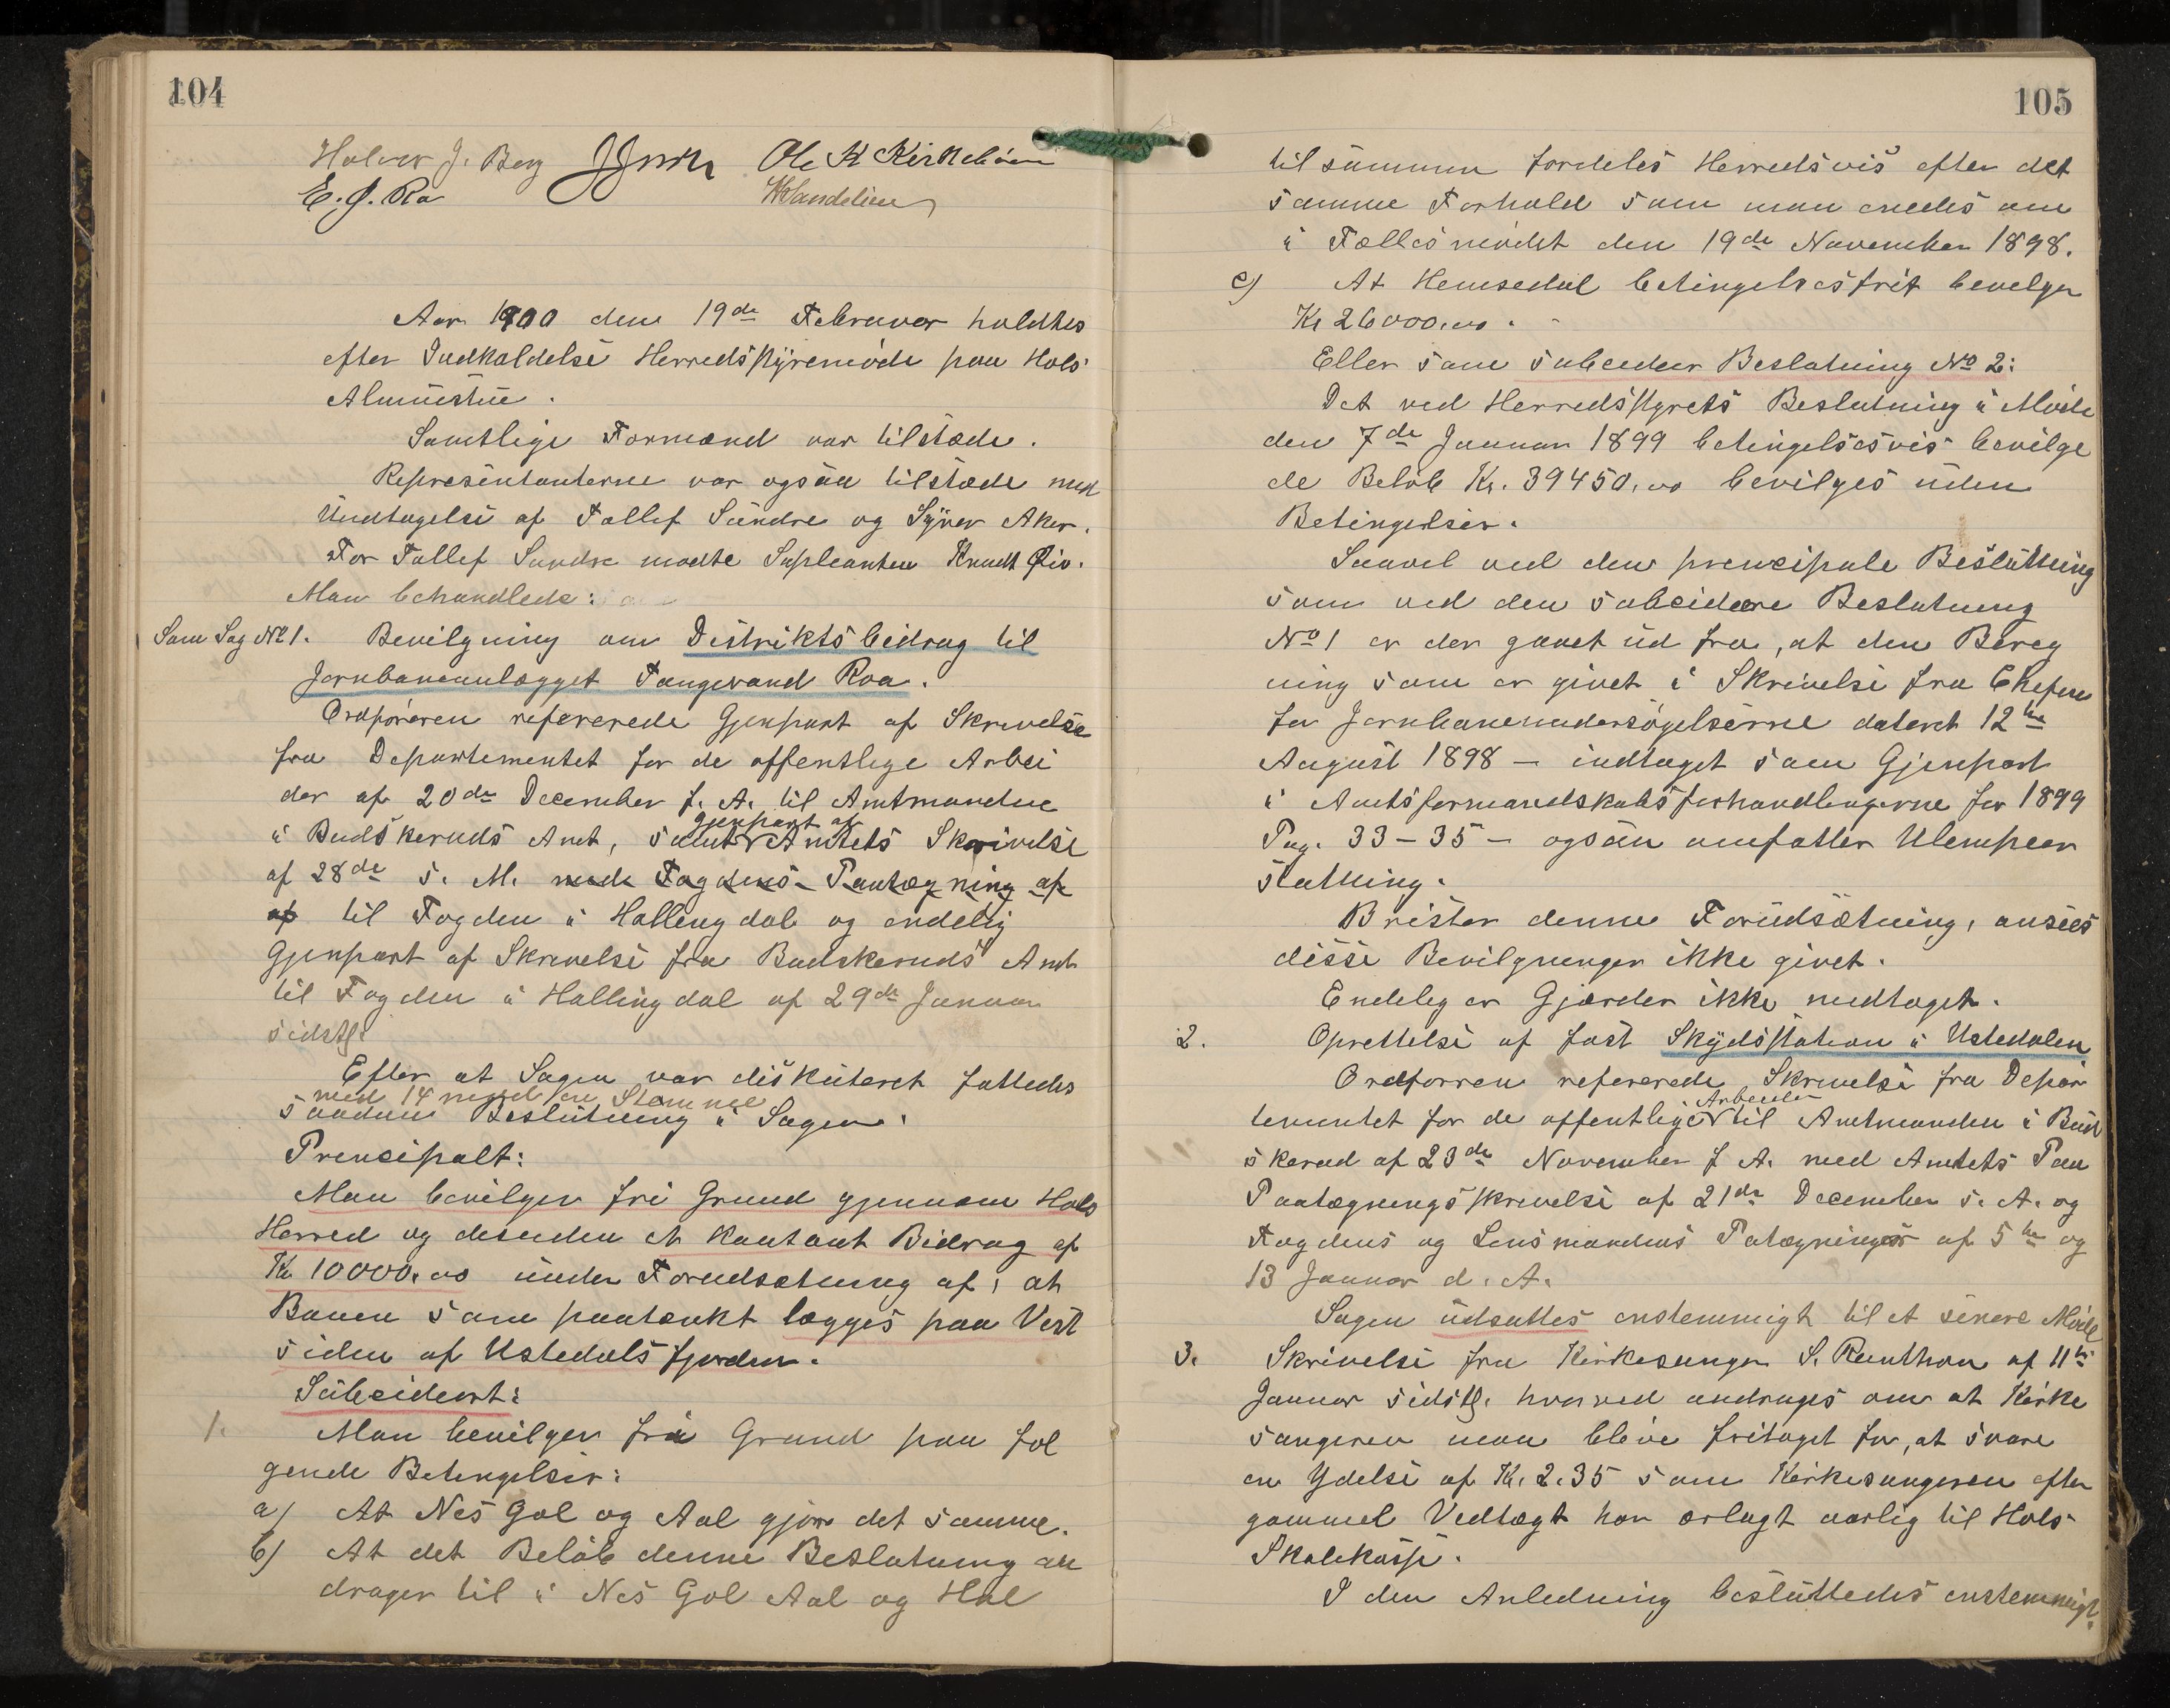 104
Halvor J. Berg Ole K Kirkebøen
E. J. Ro
Aar 1900 den 19de Februar holdtes
efter Indkaldelse Herredsstyremöde paa Hols
Almuestue.
Samtlige Formænd var tilstæde.
Represintanterne var ogsaa tilstæde med
Undtagelse af Tollef Sundre og Syver Aker.
For Tollef Sundre mødte Supleanten Knudt Øio.
Man behandlede:
Som Sag No 1. Bevilgning om Distriktsbidrag til
Jernbaneanlægget Taugevand Roa.
Ordføreren refererede Gjenpart af Skrivelse
fra Departementet for de offentlige Arbei
der af 20de December f. A. til Amtmanden
i Budskeruds Amt, samt gjenpart af Amtets Skrivelse
af 28de s. M. med Fogdens Paategning af
af til Fogden i Hallingdal og endelig
Gjenpart af Skrivelse fra Budskeruds Amt
til Fogden i Hallingdal af 29de Januar
sidstl.
Efter at Sagen var diskuteret fattedes
med 14 mod en Stemme
saadan Beslutning i Sagen:
Prencipalt:
Man bevilger fri Grund gjennem Hols
Herred og desuden et kontant Bidrag af
Kr 10000.00 under Forudsætning af, at
Banen som paatænkt lægges paa Vest
siden af Ustedalsfjorden.
Subcidært:
1. Man bevilger fri Grund paa føl
gende Betingelser:
a) At Nes Gol og Aal gjør det samme.
b) At det Beløb denne Beslutning an
drager til i Nes Gol Aal og Hol
105
tilsammen fordeles Herredsvis efter det
samme Forhold som man enedes om
i Fællesmødet den 19de November 1898.
c) At Hemsedal betingelsesfrit bevelger
Kr 26000.00.
Eller som subcidær Beslutning No 2:
Det ved Herredsstyrets Beslutning i Møde
den 7de Januar 1899 betingelsesvis bevilge
de Beløb Kr. 39450.00 bevilges uden
Betingelser.
Saavel ved den prencipale Beslutning
som ved den subcidære Beslutning
No 1 er der gaaet ud fra, at den Bereg
ning som er givet i Skrivelse fra Chefen
for Jernbaneundersøgelserne dateret 12te
August 1898 — indtaget som Gjenpart
i Amtsformandskabsforhandlingerne for 1899
Pag. 33-35 — ogsaa omfatter Ulempeer
statning.
Brister denne Forudsætning, ansees
disse Bevilgninger ikke givet.
Endelig er Gjærder ikke medtaget.
2. Oprettelse af fast Skydsstation i Ustedalen
Ordforren refererede Skrivelse fra Depar
tementet for de offentlige Arbeider til Amtmanden i Bud
skerud af 23de November f A. med Amtets Paa
Paategningsskrivelse af 21de December s. A. og
Fogdens og Lensmandens Patægninger af 5te og
13 Januar d. A.
Sagen udsattes enstemmigt til et senere Møde
3. Skrivelse fra Kirkesanger S. Runthon af 11te
Januar sidstl. hvorved andrages om at Kirke
sangeren maa blive fritaget for, at svare
en Ydelse af Kr. 2.35 som Kirkesangeren efter
gammel Vedtægt har erlagt aarlig til Hols
Skolekasse.
I den Anledning besluttedes enstemmigt: